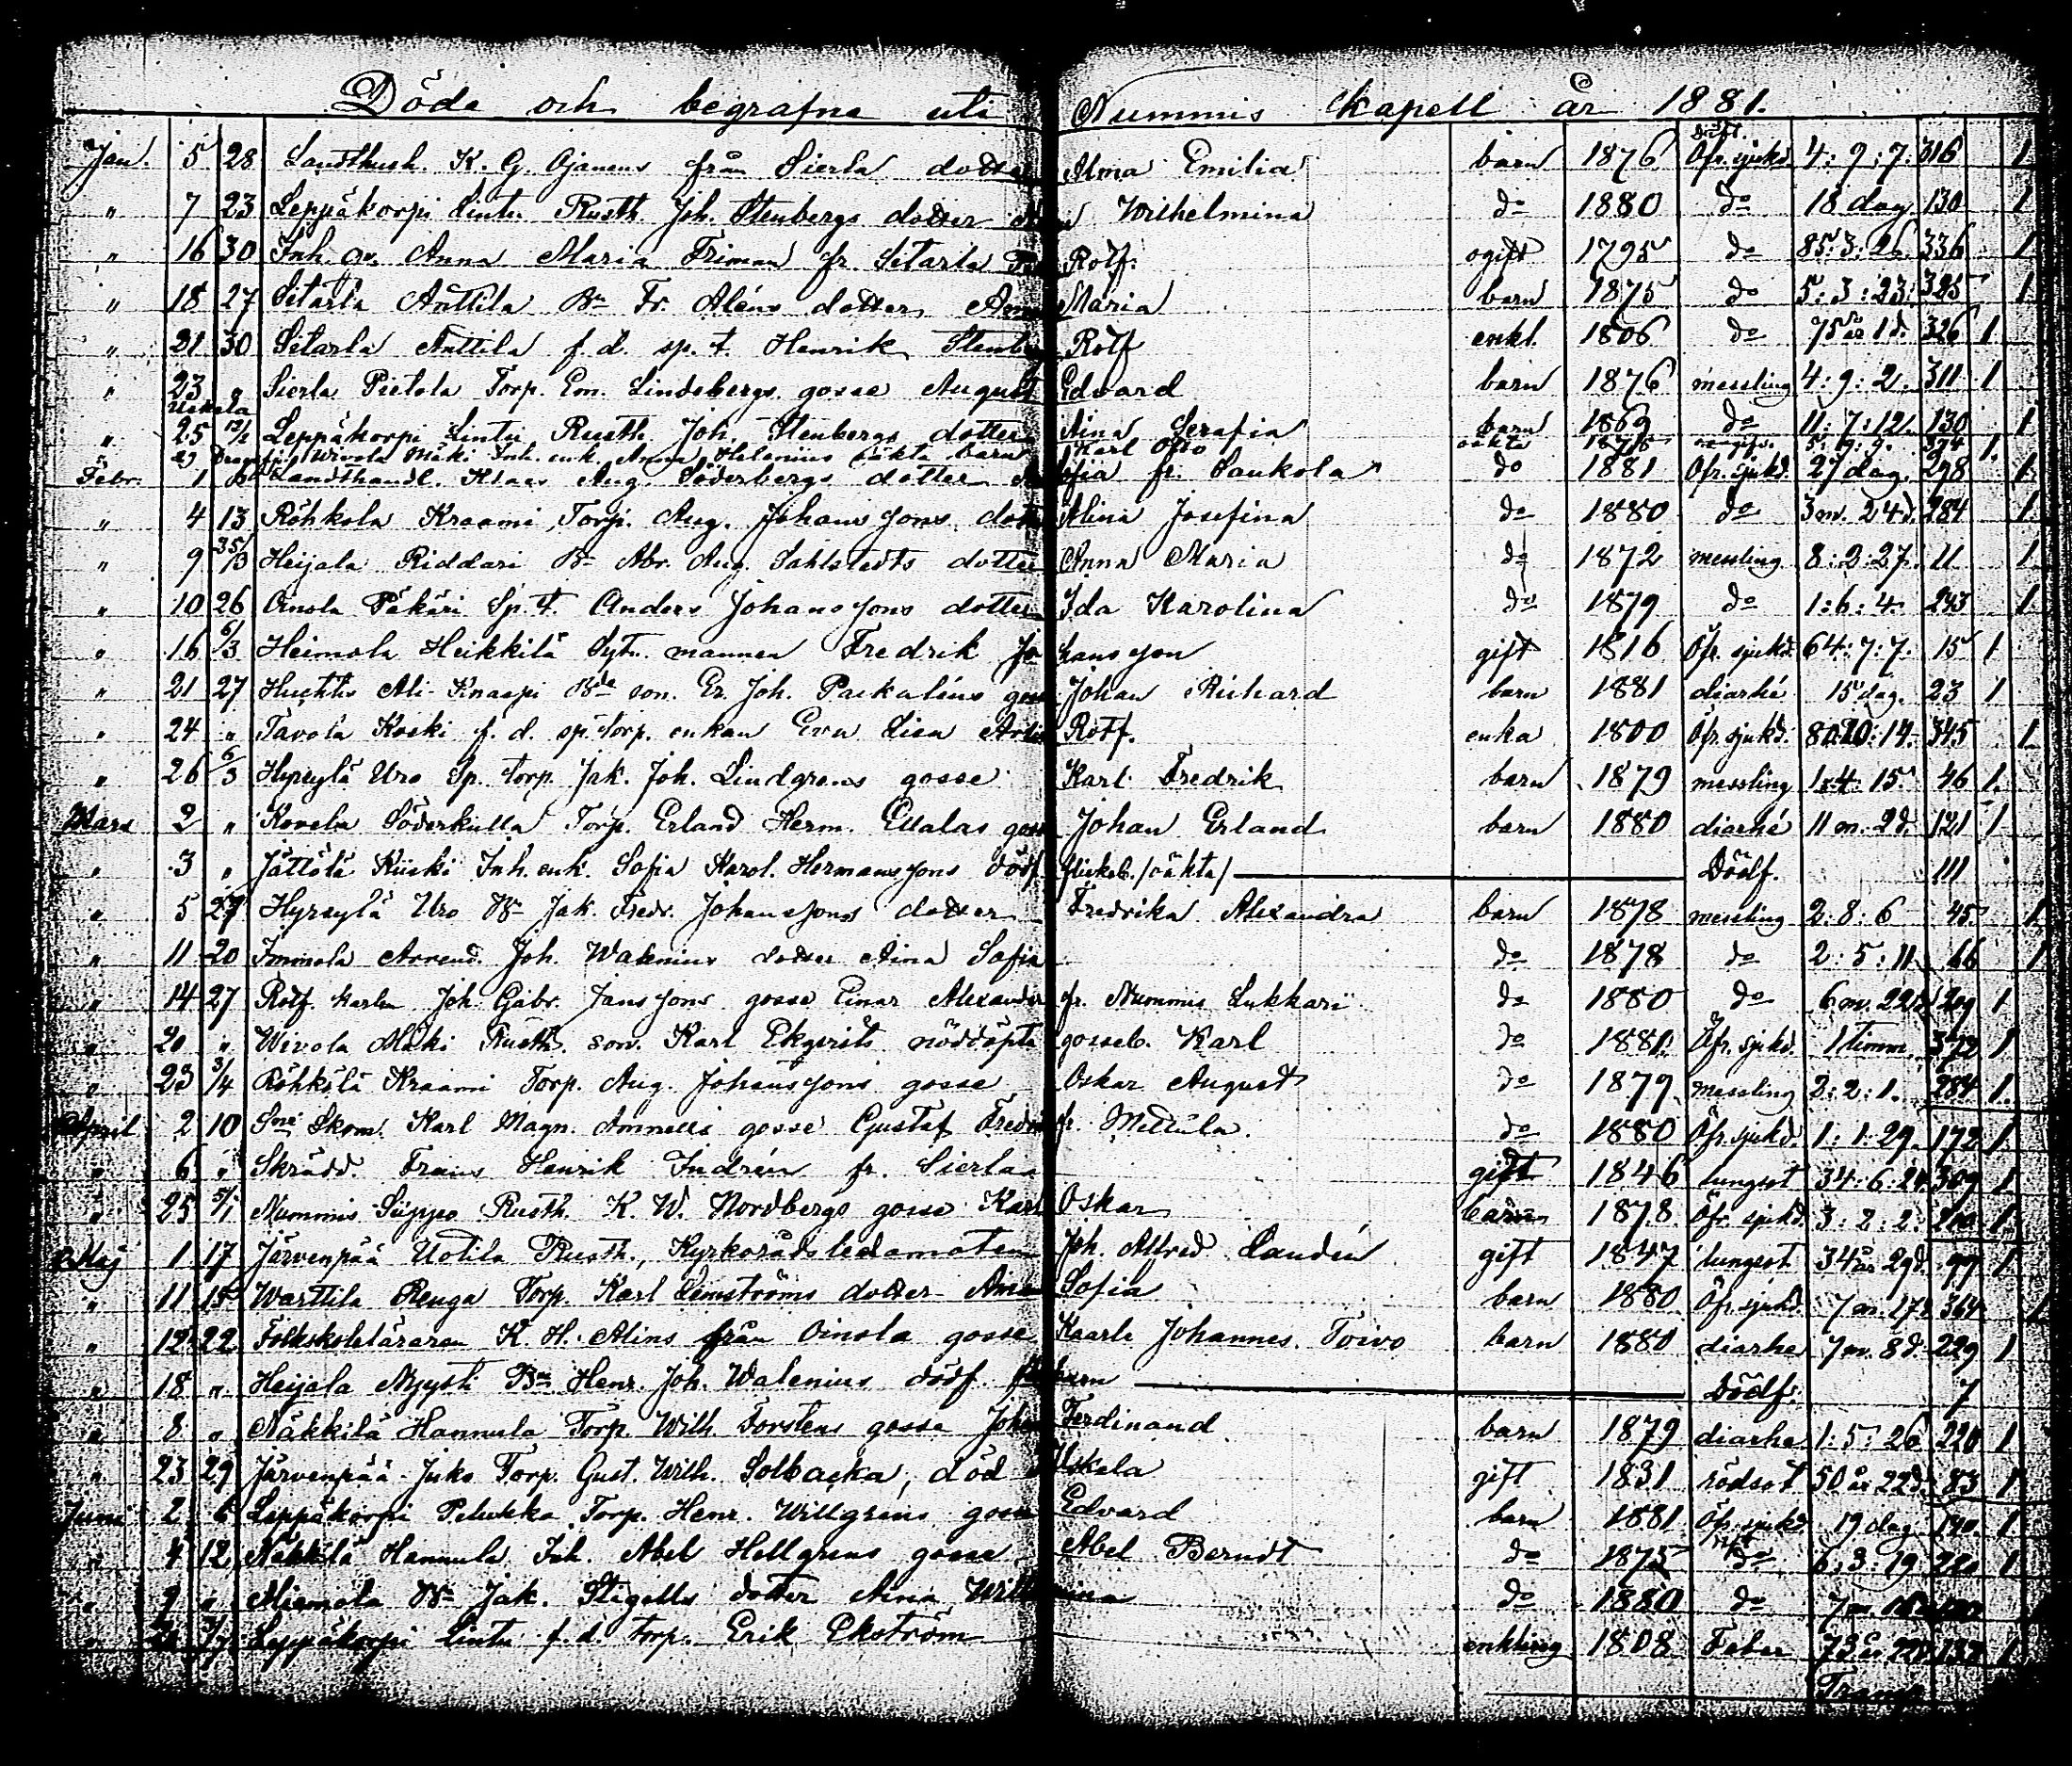 Döde och begrafne uti Nummis Kapell år 1881.
Jan. 5 28 Landtbush. K. G. Ojanens från Sierla dotter Alma Emilia barn 1876 Öfr. sjukd. 4:9:7. 316 1
" 7 23 Leppäkorpi Lintu Rusth. Joh. Stenbergs dotter Wilhelmina do 1880 do 18 dag. 130 1
" 16 30 Inh. qv. Anna Maria Friman fr. Sitarla Rotf. ogift 1795 do 85:3:26. 336 1
" 18 27 Sitarla Anttila Bn Fr. Aléns dotter Anna Maria barn 1875 do 5:3:23. 325 1
" 21 30 Sitarla Anttila f.d. sp. t. Henrik Stenberg Rotf enkl. 1806 do 75 år 1 d. 326 1
" 23 " Sierla Pietola Torp. Em. Lindebergs gosse August Edvard barn 1876 messling 4:9:2. 311 1
" 25 Leppäkorpi Lintu Rusth. Joh. Stenbergs dotter Aina Serafia barn 1869 do 11:7:12. 130 1
" 29 Wivola Mäki Inh. enk. Anna Helenius oäkta barn Karl Otto oäkta 374 1
Febr. 1 Landthandl. Klaas Aug. Söderbergs dotter Sofia fr. Saukola do 1881 Öfr. sjukd. 27 dag. 298 1
" 4 13 Röhkola Kraami Torp. Aug. Johanssons dotter Alina Josefina do 1880 do 3 m. 24 d. 284 1
" 9 Heijala Riddari Bn Abr. Aug. Sahlstedts dotter Anna Maria do 1872 messling 8:2:27. 11 1
" 10 26 Oinola Päkäri Sp. t. Anders Johanssons dotter Ida Karolina do 1879 do 1:6:4. 243 1
" 16 6/3 Heimola Heikkilä Sytn. mannen Fredrik Johansson gift 1816 Öfr. sjukd. 64:7:7. 15 1
" 21 27 Huhtis Ali-Knaapi Bde son. Er. Joh. Packaléns gosse Johan Richard barn 1881 diarhé 15 dag. 23 1
" 24 " Tavola Koski f.d. sp. torp. enkan Eva Lisa Rotf. enka 1800 Öfr. sjukd. 80:10:14. 345 1
" 26 6/3 Hyrsylä Uro Sp. torp. Jak. Joh. Lindgrens gosse Karl Fredrik barn 1879 messling 1:4:15. 46 1
Mars 2 " Kovela Söderkulla Torp. Erland Herm. Ellalas gosse Johan Erland barn 1880 diarhé 11 m. 2 d. 121 1
" 3 " Jättölä Kiiski Inh. enk. Sofia Karol. Hermanssons dödf. flickeb. /oäkta/ Dödf. 111
" 5 27 Hyrsylä Uro Bn Jak. Fredr. Johanssons dotter Fredrika Alexandra barn 1878 messling 2:8:6 45 1
" 11 20 Immola Arrend. Joh. Walenius dotter Aina Sofia do 1878 do 2:5:11 66 1
" 14 27 Rotf. karlen Joh. Gabr. Janssons gosse Einar Alexander fr. Nummis Lukkari do 1880 do 6 m. 22 d. 209 1
" 20 " Wivola Mäki Rusth. son. Karl Ekqvists nöddöpta gosseb. Karl do 1881 Öfr. sjukd. 1 timm. 372 1
" 23 3/4 Röhkölä Kraami Torp. Aug. Johanssons gosse Oskar August do 1879 messling 2:2:1. 284 1
April 2 10 Sne Skom. Karl Magn. Ammells gosse Gustaf Fredrik fr. Mettula. do 1880 Öfr. sjukd. 1:1:29. 172 1
" 6 " Skrädd. Frans Henrik Indrén fr. Sierla gift 1846 lungsot 34:6:24. 309 1
" 25 Nummis Seppo Rusth. K. W. Nordbergs gosse Karl Oskar barn 1878 Öfr. sjukd. 3:2:2. 200 1
Maj 1 17 Järvenpää Uotila Rusth., Kyrkorådsledamoten Joh. Alfred Landén gift 1847 lungsot 34 år 29 d. 99 1
" 11 15 Warttila Renga Torp. Karl Lemströms dotter Aina Sofia barn 1880 Öfr. sjukd. 7 m. 17 d. 364 1
" 12 22 Folkskoleläraren K. H. Alins från Oinola gosse Kaarle Johannes Toivo barn 1880 diarhe 7 m. 8 d. 229 1
" 18 " Heijala Nyysti Bn Henr. Joh. Walenius dödf. Dödf. 7
" 8 " Näkkilä Hannula Torp. Wilh. Forstens gosse Johan Ferdinand barn 1879 diarhe 1:5:26. 220 1
" 23 29 Järvenpää Juko Torp. Gust. Wilh. Solbacka, död i Uskela gift 1831 rödsot 50 år 22 d. 83 1
Juni 2 6 Leppäkorpi Pelukka Torp. Henr. Willgrens gosse Edvard barn 1881 Öfr. sjukd. 19 dag. 140 1
" 4 12 Näkkilä Hannula Inh. Abel Hellgrens gosse Abel Berndt do 1875 do 6:3:19 220 1
" 9 " Miemola Bn Jak. Stigells dotter Aina Wilhelmina do 1880 do 7 m.
" Leppäkorpi Lintu f.d. torp. Erik Ekström enkling 1808 Feber 73 år 22 d. 132 1
Transp.